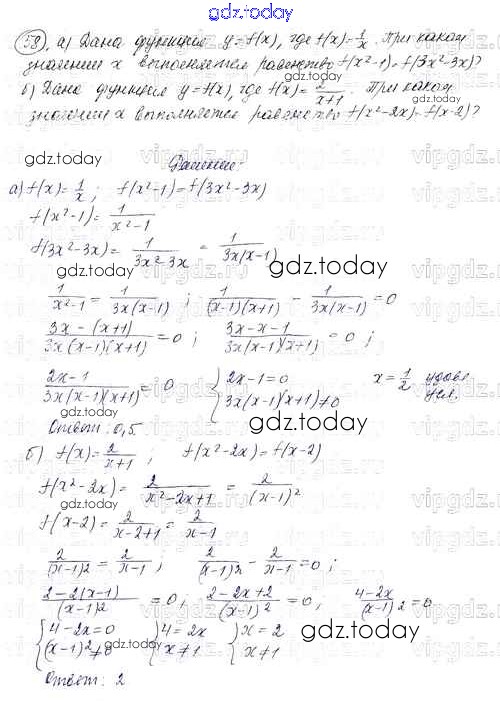 gdz.today
58, а) Дана функция y=f(x), где f(x)=1/x. При каком
значении x выполняется равенство f(x²-1)=f(3x²-3x)?
б) Дана функция y=f(x), где f(x)=2/(x+1). При каком
значении x выполняется равенство f(x²-2x)=f(x-2)?
gdz.today
gdz.today
Решение:
а) f(x)=1/x; f(x²-1)=f(3x²-3x)
f(x²-1)=1/(x²-1)
f(3x²-3x)=1/(3x²-3x)=1/(3x(x-1))
gdz.today
gdz.today
1/(x²-1)=1/(3x(x-1)); 1/((x-1)(x+1))-1/(3x(x-1))=0
(3x-(x+1))/(3x(x-1)(x+1))=0; (3x-x-1)/(3x(x-1)(x+1))=0;
(2x-1)/(3x(x-1)(x+1))=0 {2x-1=0 3x(x-1)(x+1)≠0 x=1/2 удовл. усл.
gdz.today
gdz.today
Ответ: 0,5.
б) f(x)=2/(x+1); f(x²-2x)=f(x-2)
f(x²-2x)=2/(x²-2x+1)=2/(x-1)²
gdz.today
f(x-2)=2/(x-2+1)=2/(x-1)
gdz.today
2/(x-1)²=2/(x-1); 2/(x-1)²-2/(x-1)=0;
(2-2(x-1))/(x-1)²=0; (2-2x+2)/(x-1)²=0; (4-2x)/(x-1)²=0
{4-2x=0 (x-1)²≠0 {4=2x x≠1 {x=2 x≠1
gdz.today
gdz.today
Ответ: 2
vipgdz.ru